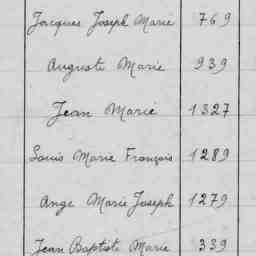 Jacques Joseph Marie 769
Auguste Marie 939
Jean Marie 1327
Louis Marie François 1289
Ange Marie Joseph 1279
Jean Baptiste Marie 339